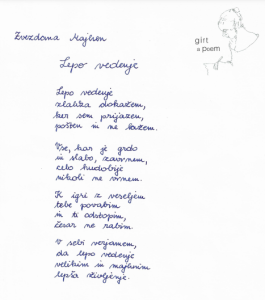 Zvezdana Majhen
girt
a poem
Lepo vedenje
Lepo vedenje
zlahka dokažem,
ker sem prijazen,
pošten in ne lažem.
Vse, kar je grdo
in slabo, zavrnem,
celo hudobije
nikoli ne vrnem.
K igri z veseljem
tebe povabim
in ti odstopim,
česar ne rabim.
V sebi verjamem,
da lepo vedenje
velikim in majhnim
lepša življenje.